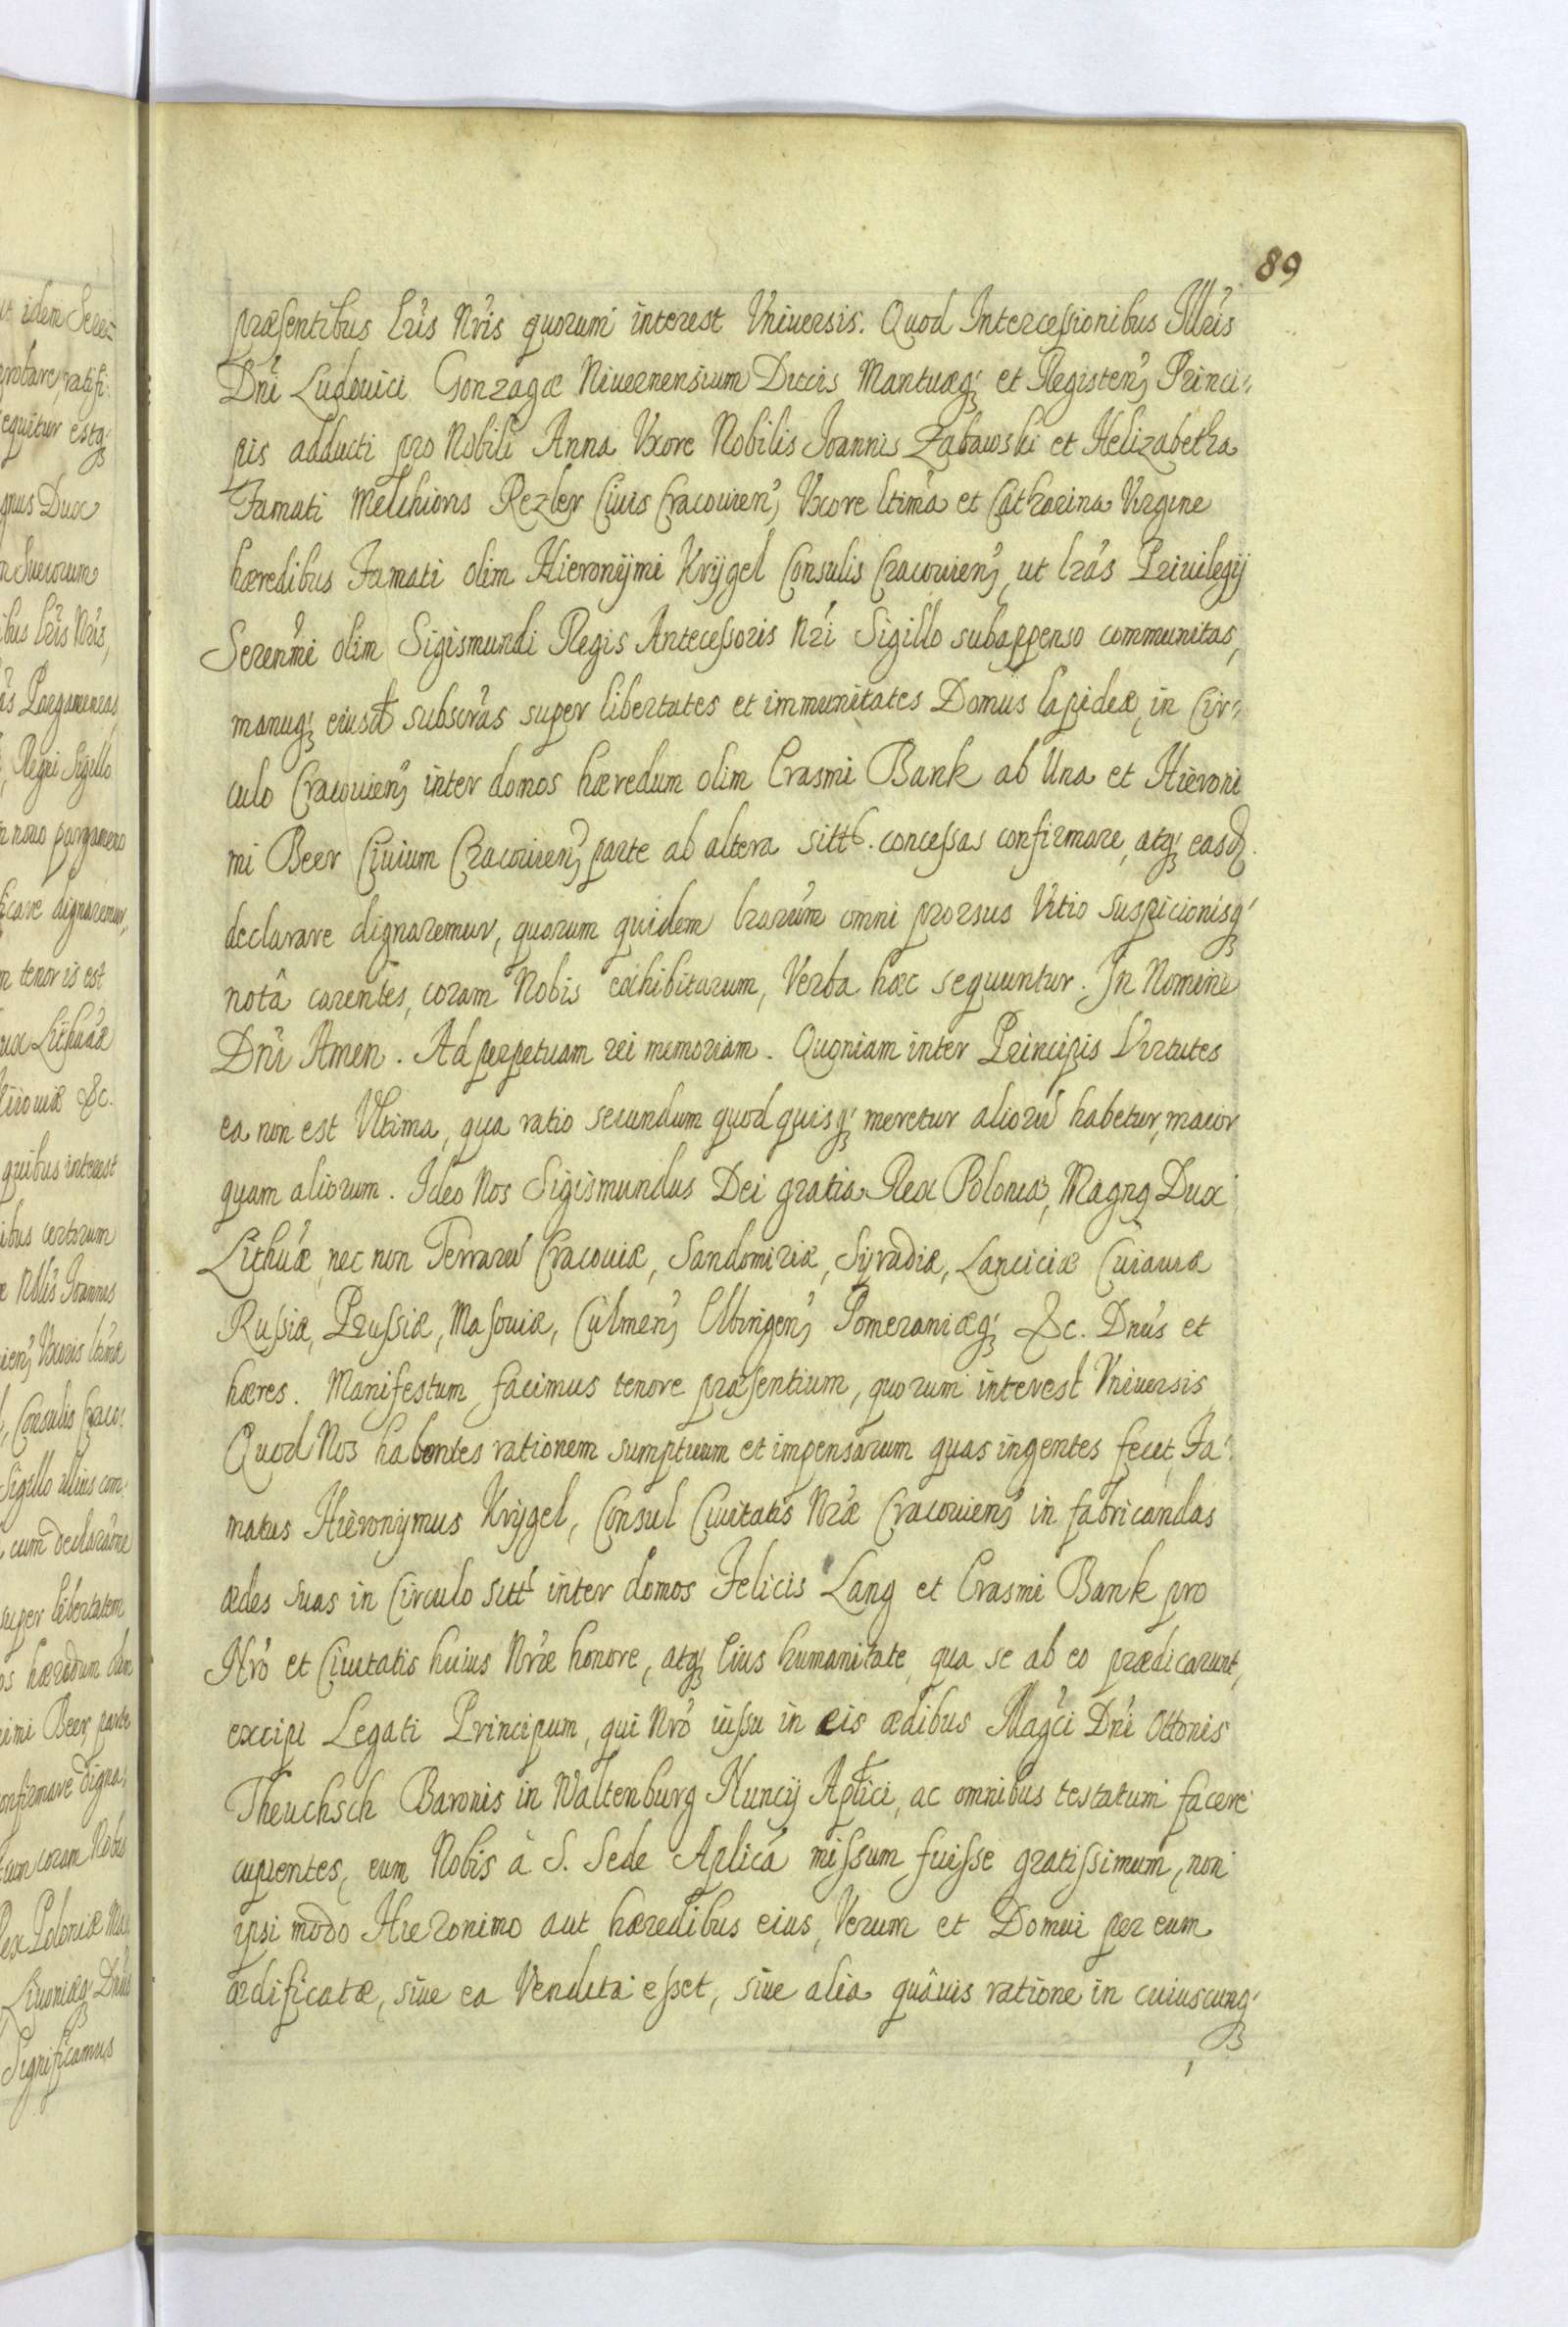 89
præsentibus lr̃is Nr̃is quorum interest Vniversis. Quod Intercessionibus Illr̃is
Dñi Ludouici Gonzagæ Niuernensium Ducis Mantuæq; et Registen; Princi-
pis adducti pro Nobili Anna Vxore Nobilis Joannis Zabawski et Helizabetha
Famati Melchioris Rezler Ciuis Cracouien; Vxore ltima et Catharina Virgine
hæredibus Famati olim Hieronÿmi Krÿgel Consulis Cracouien; ut lrãs Priuilegÿ
Serenm̃i olim Sigismundi Regis Antecessoris Nr̃i Sigillo subappenso communitas,
manuq; eiusd subscrãs super libertates et immunitates Domus lapideæ, in Cir-
culo Cracouien; inter domos hæredum olim Erasmi Bank ab Una et Hieroni
mi Beer Ciuium Cracouien; parte ab altera sitt. concessas confirmare, atq; easd.
declarare dignaremur, quarum quidem lrarũm omni prorsus Vitio suspicionisq;
notâ carentes, coram Nobis exhibitarum, Verba hæc sequuntur. In Nomine
Dñi Amen. Ad perpetuam rei memoriam. Quoniam inter Principis Virtutes
ea non est Vltima, qua ratio secundum quod quisq; meretur aliorũ habetur, maior
quam aliorum. Ideo Nos Sigismundus Dei gratia Rex Poloniæ, Magng Dux
Lithuæ̃, nec non Terrarũ Cracouiæ, Sandomiriæ, Sÿradiæ, Lanciciæ Cuiauiæ
Russiæ, Prussiæ, Masouiæ, Culmen; Elbingen; Pomeraniæq; &c. Dnũs et
hæres. Manifestum facimus tenore præsentium, quorum interest Vniuersis
Quod Nos habentes rationem sumptuum et impensarum quas ingentes fecit, Fa-
matus Hieronÿmus Krÿgel, Consul Ciuitatis Nræ̃ Cracouien; in fabricandas
ædes suas in Circulo sitt inter domos Felicis Lang et Erasmi Bank pro
Nrõ et Ciuitatis huius Nræ̃ honore, atq; Eius humanitate, qua se ab eo prædicarunt,
excipi Legati Principum, qui Nrõ iussu in eis ædibus Magc̃i Dñi Ottonis
Theuchsch Baronis in Waltenburg Nuncÿ Aplĩci, ac omnibus testatum facere
cupientes, eum Nobis à S. Sede Aplicã missum fuisse gratissimum, non
ipsi modo Hieronimo aut hæredibus eius, Verum et Domui per eum
ædificatæ, siue ea Vendita esset, siue alia quâuis ratione in cuiuscunq;